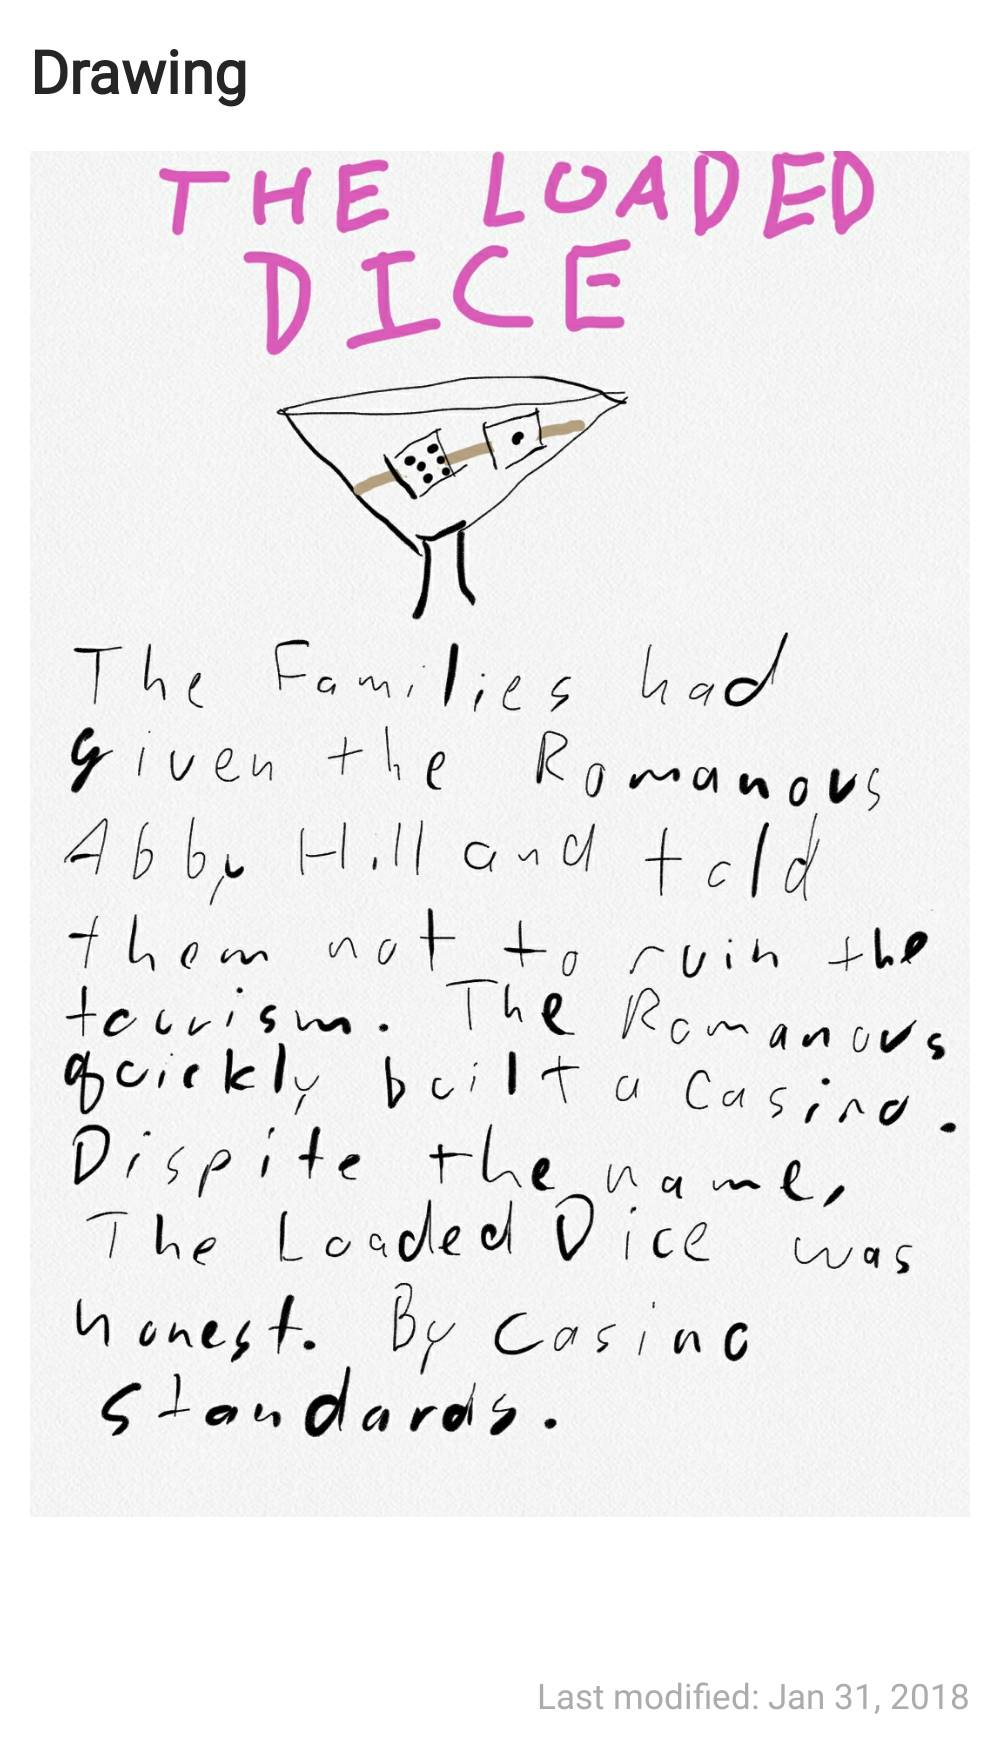 Drawing
THE LOADED
DICE
The Families had
given the Romanovs
Abby Hill and told
them not to ruin the
tourism. The Romanovs
quickly built a Casino.
Dispite the name,
The Loaded Dice was
honest. By Casino
standards.
Last modified: Jan 31, 2018